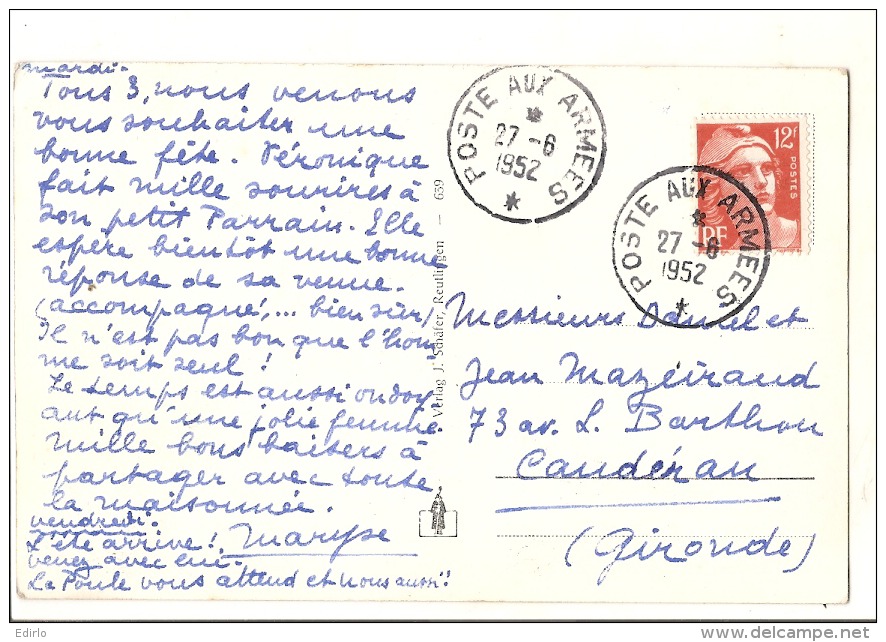 mardi.
Tous 3, nous venons
vous souhaiter une
bonne fête. Véronique
fait mille sourires à
son petit Parrain. Elle
espère bientôt une bonne
réponse de sa venue.
(accompagné!,... bien sûr)
Il n'est pas bon que l'hom
me soit seul!
Le temps est aussi ondoy
ant qu'une jolie femme.
Mille bons baisers à
partager avec toute
la maisonnée.
vendredi.
Maryse
L'été arrive!
venez avec lui.
La Poule vous attend et nous aussi!
Verlag J. Schäfer, Reutlingen — 639
POSTE AUX ARMEES
27 -6
1952
12F
POSTES
RF
POSTE AUX ARMEES
27 -6
1952
Messieurs Daniel et
Jean Mazeiraud
73 av. L. Barthou
Caudéran
(Gironde)
Edirlo
www.delcampe.net